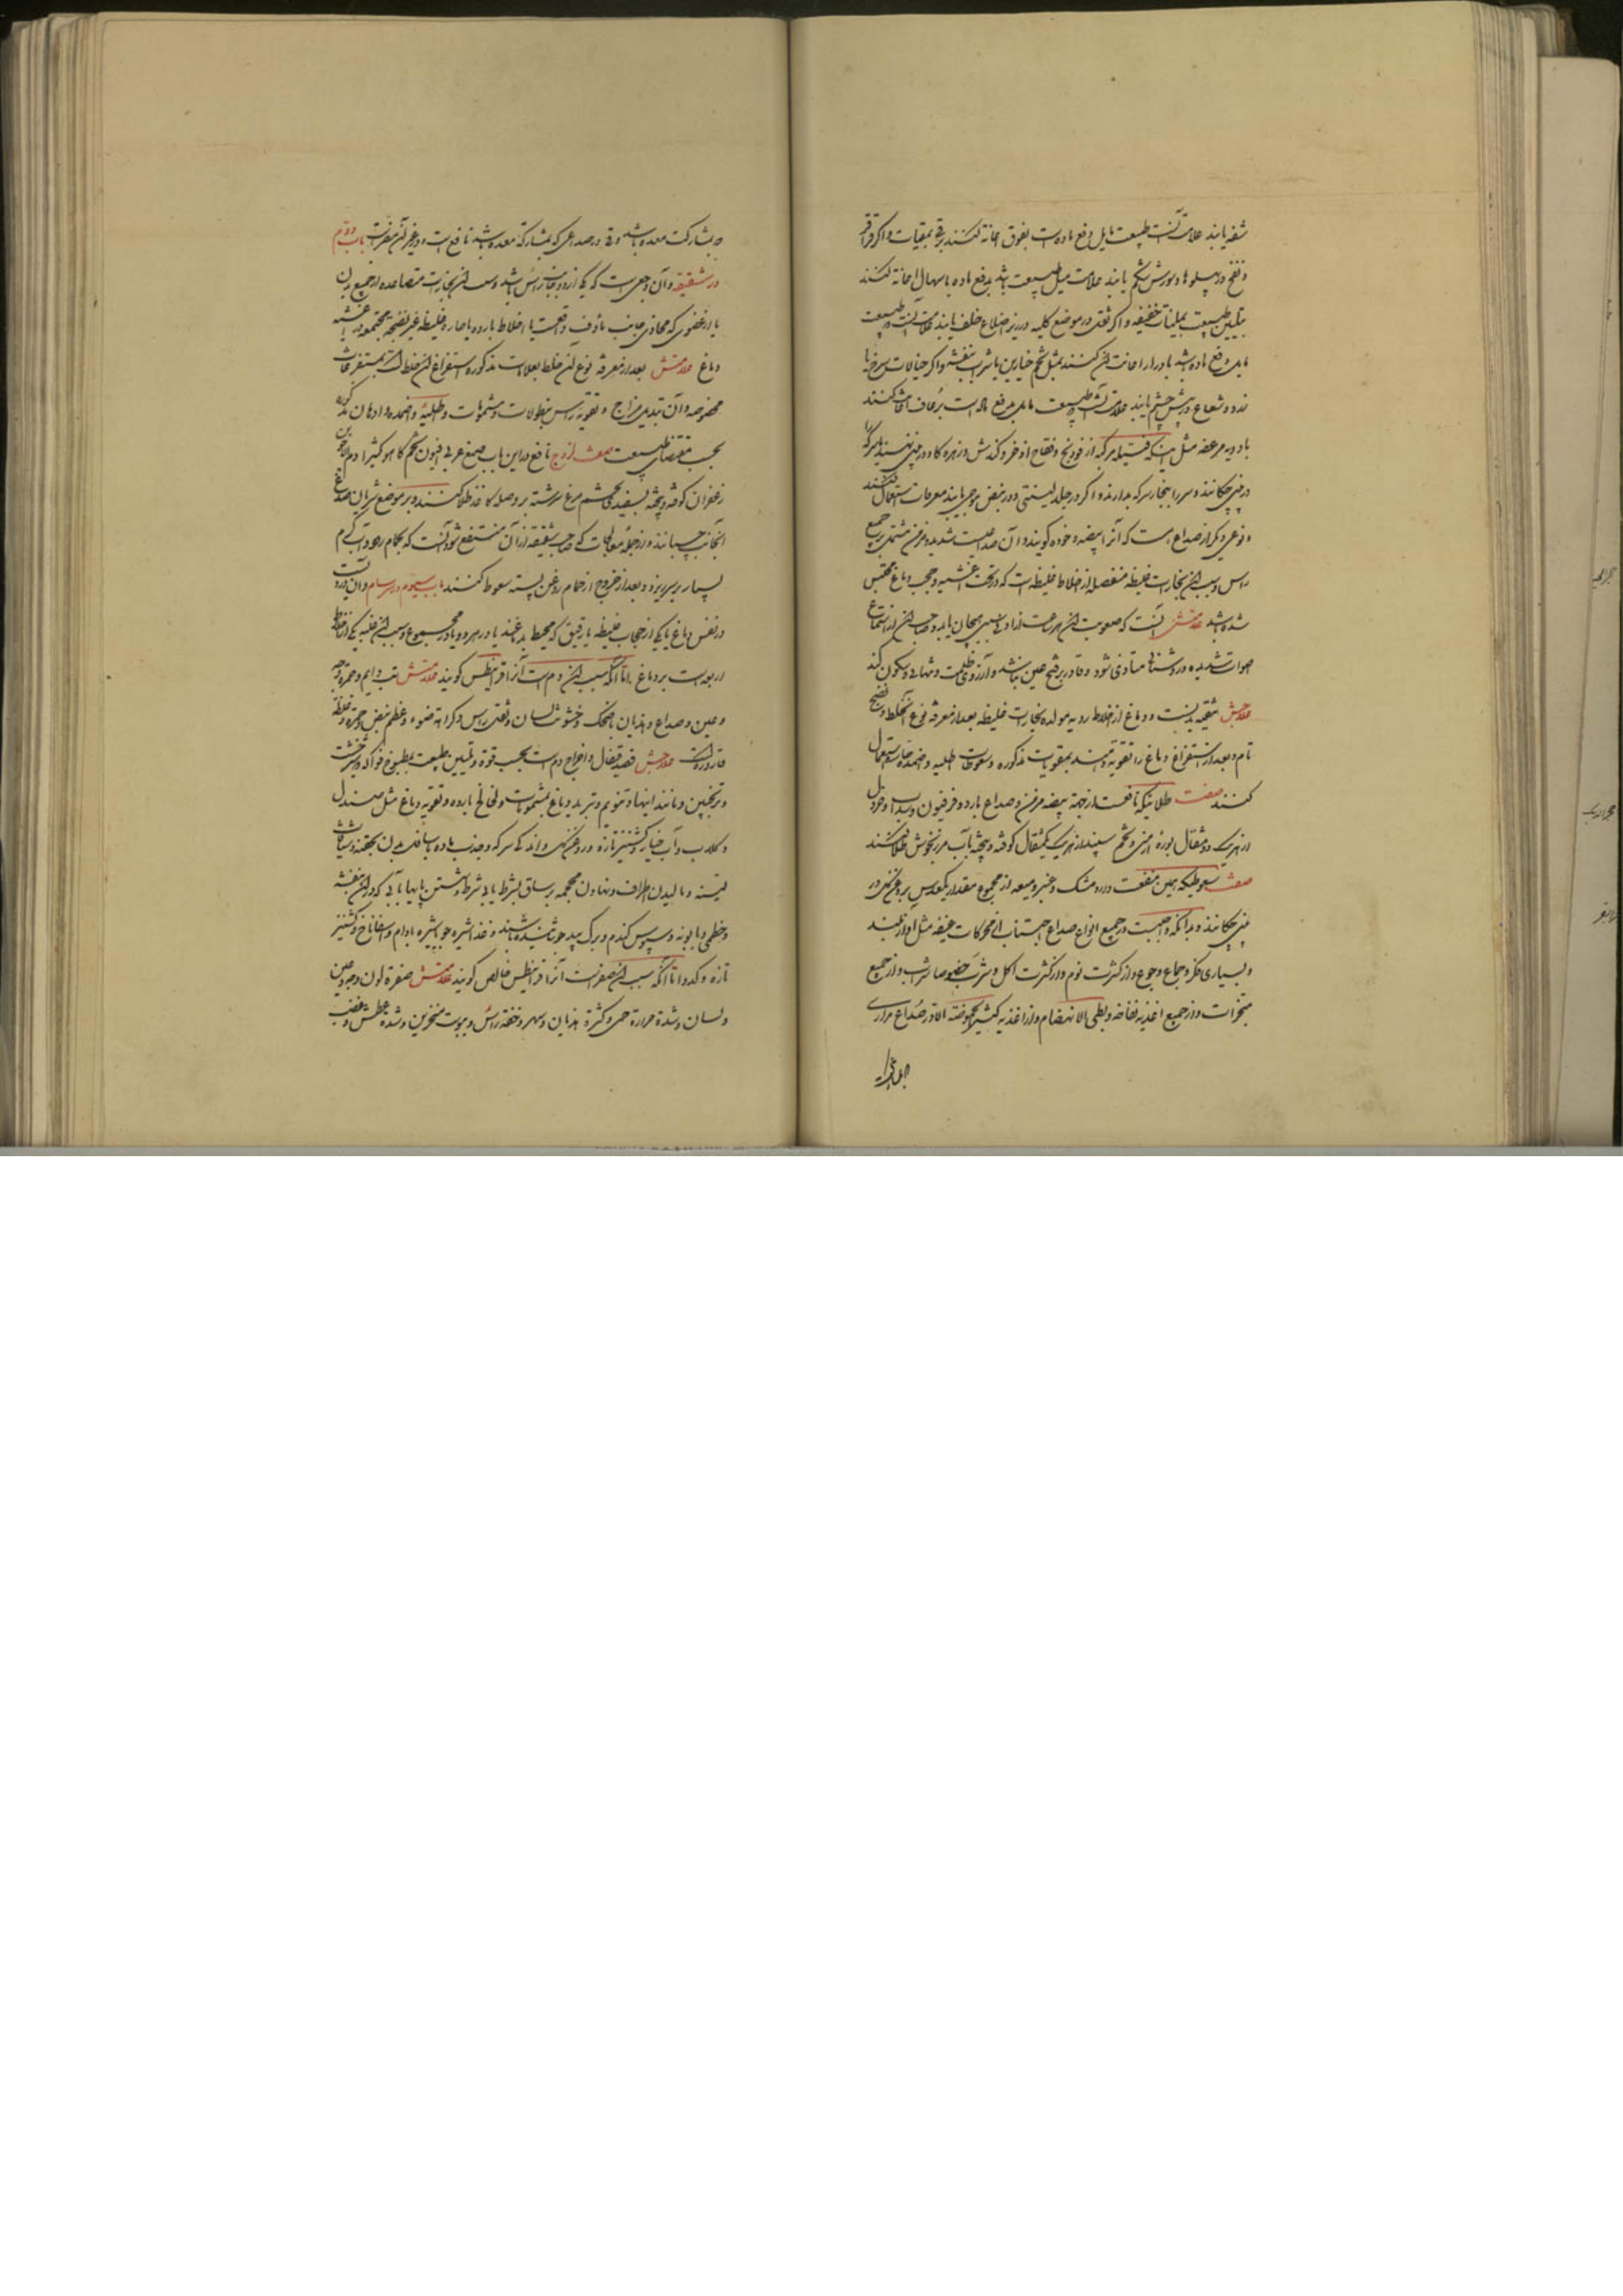 شفه یابند علامت آنست طبیعت مایل دفع ماده است بفوق اعانه کنند برقی بمقیات و اگر قراقر
و نفخ در پهلوها و سوزش شکم یابند علامت میل طبیعت باشد بدفع ماده باسهال اعانه کنند
بتلیین طبیعت بملینات خفیفه و اگر ثقلی در موضع کلیه و در زیر اضلاع خلف یابند علامت آنست که طبیعت
مایل دفع ماده باشد بادرار اعانت آن کنند بمثل تخم خیارین با شراب بنفشه و اگر خیالات سرخ یا
زرد و شعاع در پیش چشم یابند علامت آنست که طبیعت مایل بدفع ماده است برعاف اعانت کنند
بادویه مرعفه مثل اینکه فتیله مرکبه از فودنج و فقاح اذخر و کندش و زهره کاو در بینی نهند یا سرکه را
در بینی چکانند و سر را ببخار سرکه بدارند و اگر در جلد لینتی و در نبض موجی یابند معرقات استعمال کنند
و نوعی دیگر از صداع هست که آنرا بیضه و خوده گویند و آن صداعیست شدید و مزمن مشتمل بر جمیع
راس و سبب آن بخارات غلیظه منفصله از اخلاط غلیظه است که در تحت اغشیه و حجب دماغ محتبس
شده باشد علامتش آنست که صعوبت آن هر ساعت از ادنی سببی هیجان یابد و صاحب آن از استماع
صوات شدیده و روشنائی متاذی شود و قادر بر فتح عین نباشد و آرزوی ظلمت و تنهائی و سکون کند
علاجش تنقیه بدنست و دماغ از اخلاط ردیه مولده بخارات غلیظه بعد از معرفه نوع آنخلط و نضج
تام و بعد از استفراغ دماغ را تقویه نمایند بمقویات مذکوره و سعوطات و اطلیه و اضمده حاره استعمال
کنند صفت طلائیکه نافعست از جهة بیضه مزمن و صداع بارد و فرفیون و سداب و خردل
از هریک دو مثقال بوره ارمنی و تخم سپند از هریک یکمثقال کوفته و بیخته بآب مرزنجوش طلا کنند
صفت سعوطیکه همین منفعت دارد مشک و عنبر و میعه از مجموع مقدار یکعدس بروغن زنبق در
بینی چکانند و بدانکه واجبست در جمیع انواع صداع اجتناب از محرکات عنیفه مثل آواز بلند
و بسیاری فکر و جماع و جوع و از کثرت نوم و از کثرت اکل و شرب خصوصا شراب و از جمیع
مبخرات و از جمیع اغذیه نفاخه و بطی الانهضام و از اغذیه کثیر الحموضه الا در صداع مراری
که بمشارکت معده باشد و قی در صداعی که بمشارکة معده باشد نافع است و در غیر آن مضرست باب دوم
در شقیقه و آن وجعی است که در یکی از دو جانب راس باشد و سبب آن بخارات متصاعده از جمیع بدن
یا از عضوی که محاذی جانب ماوف واقعست یا اخلاط بارده یا حاره غلیظه غیر نضیجه مجتمعه در اغشیه
دماغ علامتش بعد از معرفه نوع آن خلط بعلامات مذکوره استفراغ آن خلط است بمستفرغات
مخصوصه و آن تبدیل مزاج و تقویه راس بنطولات و شمومات و اطلیه و اضمده و ادهان مذکوره
بحسب مقتضای طبیعت صفت لزوج نافع در این باب صمغ عربی افیون تخم کاهو کثیرا دم الاخوین
زعفران کوفته و بیخته بسفیده تخم مرغ سرشته بر وصله کاغذ طلا کنند و بر موضع شریان صدغ
آنجانب چسبانند و از جمله معالجات که صاحب شقیقه از آن منتفع شود آنست که بحمام رود و آب گرم
بسیار بر سر ریزد و بعد از خروج از حمام روغن پسته سعوط کنند باب سیوم در سرسام و آن ورم است
در نفس دماغ یا یکی از حجاب غلیظه یا رقیق که محیط بدماغند یا در هر دو یا در مجموع و سبب آن غلبه یکی از اخلاط
اربعه است بر دماغ اما آنکه سبب آن دم است آنرا قرانیطس گویند علامتش تب دایم و حمرة وجه
و عین و صداع و هذیان با ضحک و خشونت لسان و ثقل راس و کراهة ضوء و عظم نبض و حمرة و غلظه
قاروره است علاجش فصد قیفال و اخراج دم است بحسب قوة و تلیین طبیعت بمطبوخ فواکه و شیرخشت
و ترنجبین و مانند اینها و تنویم و تبرید دماغ بشمومات و لخالخ بارده و تقویه دماغ مثل صندل
و گلاب و آب خیار و گشنیز تازه و روغن گل و اندکی سرکه و جذب ماده باسافل بدن بحقنه و شیافات
لینه و مالیدن اطراف و نهادن محجمه بر ساق بشرط یا بی شرط و شستن پایها بآبی که در آن بنفشه
و خطمی و بابونه و سبوس گندم و برگ بید جوشانیده باشند و غذا شیره جو یا شیره بادام و اسفاناخ و گشنیز
تازه و کدو اما آنکه سبب آن صفراست آنرا قرانیطس خالص گویند علامتش صفرة لون وجه و عین
و لسان و شدة حرارة حمی و کثرة هذیان و سهر و خفة راس و یبوست منخرین و شدة عطش و غضب